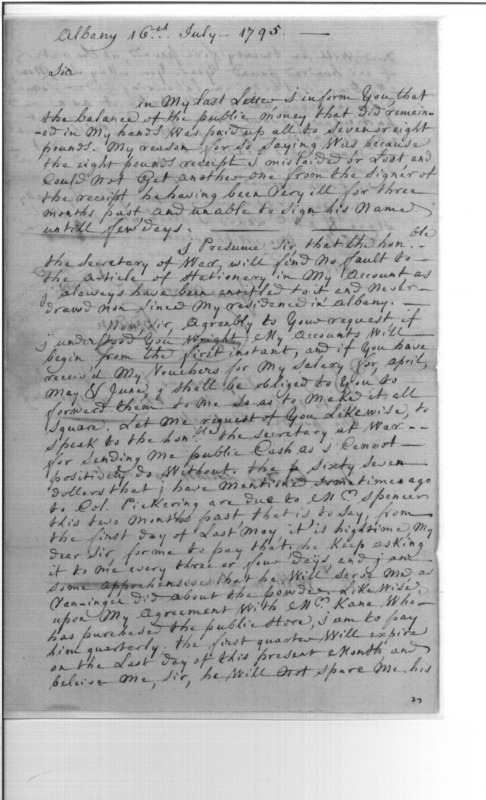 Albany 16.th July - 1795. —
Sir.
in My last Letter, j inform You, that
the balance of the public money that did remain-
-ed in My hands, Was paid up all to seven or eight
pounds. My reason for so saying Was because
the eight pounds receipt j mislaided or Lost and
Could Not Get another one from the signer of
the receipt he having been Very ill for three
months past and unable to sign his Name
untill few days.
j Presume Sir, that the hon. ble
the secretary of War, will find No fault to
the article of stationery in My Account as
j aleways have been entitled to it and Never
drawd non since My residence in albany. —
Now, Sir, Agreably to Your request if
j understood You Wright, My Accounts Will
begin from the first instant, and if You have
receiv'd My Vouchers for My Salery for, april,
May & June, j shall be obliged to You to
forward them to Me so as to Make it all
square. Let Me request of You Likewise, to
speak to the hon. ble the secretary at War --
for sending Me public Cash as j Cannot
positively do Without. the sixty seven
dollers that j have Mantioned sometimes ago
to Col. Pickering are due to Mr. Spencer
this two Months past, that is to say, from
the first day of Last May it is high time My
dear Sir, for me to pay that. he Keep asking
it to Me every three or four days and j am
some apprehensive that he Will serve Me as
did about the powder. Likewise,
upon My Agreement With Mr. Kane Who
has purchase the public store, j am to pay
him quarterly. the first quarter Will expire
on the Last day of this present Month, and
beleive Me, Sir, he Will Not spare Me his